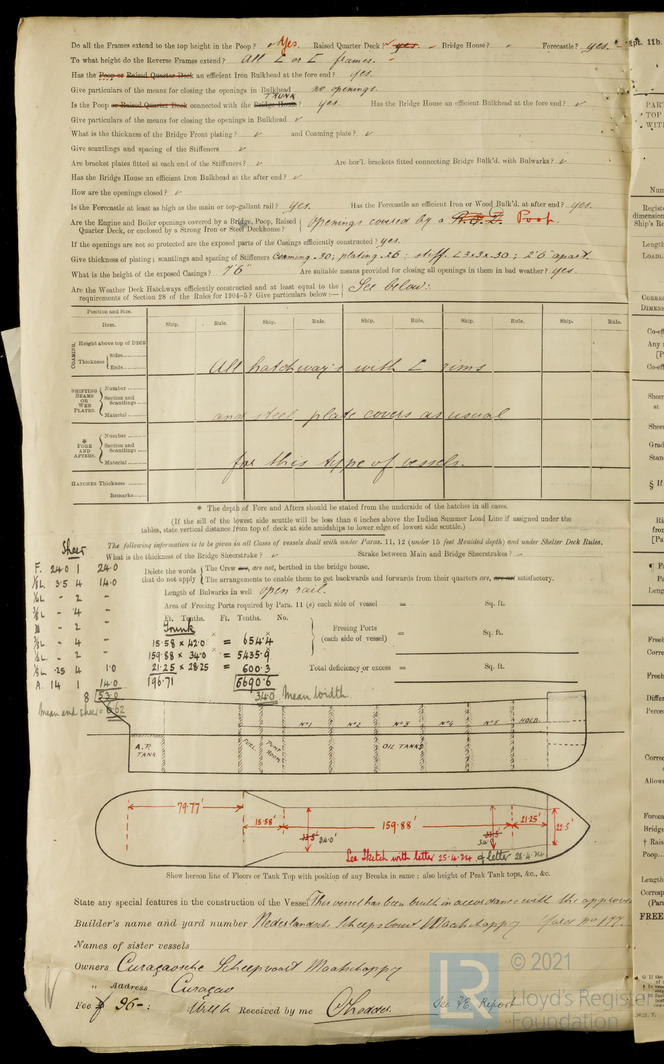 Do all the Frames extend to the top height in the Poop? Yes. Raised Quarter Deck? yes. Bridge House? Forecastle? yes.
To what height do the Reverse Frames extend? All L or L frames.
Has the Poop or Raised Quarter Deck an efficient Iron Bulkhead at the fore end? yes.
Give particulars of the means for closing the openings in Bulkhead no openings.
TRUNK
Is the Poop or Raised Quarter Deck connected with the Bridge House? yes. Has the Bridge House an efficient Bulkhead at the fore end? ✓
Give particulars of the means for closing the openings in Bulkhead ✓
What is the thickness of the Bridge Front plating? ✓ and Coaming plate? ✓
Give scantlings and spacing of the Stiffeners ✓
Are bracket plates fitted at each end of the Stiffeners? ✓ Are hor'l. brackets fitted connecting Bridge Bulk'd. with Bulwarks? ✓
Has the Bridge House an efficient Iron Bulkhead at the after end? ✓
How are the openings closed? ✓
Is the Forecastle at least as high as the main or top-gallant rail? yes. Has the Forecastle an efficient Iron or Wood Bulk'd. at after end? yes.
Are the Engine and Boiler openings covered by a Bridge, Poop, Raised Quarter Deck, or enclosed by a Strong Iron or Steel Deckhouse? Openings covered by a R.Q.D. Poop.
If the openings are not so protected are the exposed parts of the Casings efficiently constructed? yes.
Give thickness of plating; scantlings and spacing of Stiffeners Coaming .30; plating .26; stiff. L3x3x.30; 2'6" apart
What is the height of the exposed Casings? 7'6" Are suitable means provided for closing all openings in them in bad weather? yes.
Are the Weather Deck Hatchways efficiently constructed and at least equal to the requirements of Section 28 of the Rules for 1904-5? Give particulars below:— See below:
Position and Size.
Item. Ship. Rule. Ship. Rule. Ship. Rule. Ship. Rule. Ship. Rule.
COAMING. Height above top of DECK
Thickness Sides
Ends
All hatchway's with L rims
SHIFTING BEAMS OR WEB PLATES. Number
Section and Scantlings
Material
and steel plate covers as usual
* FORE AND AFTERS. Number
Section and Scantlings
Material
for this type of vessels.
HATCHES Thickness
Remarks
* The depth of Fore and Afters should be stated from the underside of the hatches in all cases.
(If the sill of the lowest side scuttle will be less than 6 inches above the Indian Summer Load Line if assigned under the
tables, state vertical distance from top of deck at side amidships to lower edge of lowest side scuttle.)
The following information is to be given in all Cases of vessels dealt with under Paras. 11, 12 (under 15 feet Moulded depth) and under Shelter Deck Rules.
What is the thickness of the Bridge Sheerstrake? ✓ Strake between Main and Bridge Sheerstrakes?
Delete the words that do not apply The Crew are, are not, berthed in the bridge house.
The arrangements to enable them to get backwards and forwards from their quarters are, are not satisfactory.
Length of Bulwarks in well open rail.
Area of Freeing Ports required by Para. 11 (e) each side of vessel = Sq. ft.
Ft. Tenths. Ft. Tenths. No.
Freeing Ports (each side of vessel) = Sq. ft.
Total deficiency or excess = Sq. ft.
Sheer
F. 24.0 1 24.0
⅛L. 3.5 4 14.0
¼L - 2 -
⅜L. - 4 -
- 2 -
⅜L - 4 -
¼L. - 2 -
⅛L .25 4 1.0
A. 14 1 14.0
8 53.0
mean and sheer = 6.62
Trunk
15.58 x 42.0 = 654.4
159.88 x 34.0 = 5435.9
21.25 x 28.25 = 600.3
196.71 6690.6
34.0 mean width
A.P. TANK. FUEL. PUMP ROOM Nº1 Nº2 Nº3 Nº4 Nº5 HOLD
OIL TANKS
79.77' 15.58' 159.88' 21.25'
33.5' 34.0' 33.5' 34. 22.5'
See Sketch with letter 25.4.24 & letter 28.4.24
Show hereon line of Floors or Tank Top with position of any Breaks in same: also height of Peak Tank tops, &c., &c.
State any special features in the construction of the Vessel This vessel has been built in accordance with the approv
Builder's name and yard number Nederlandsche Scheepsbouw Maatschappy Yard no 177.
Names of sister vessels
Owners Curaçaosche Scheepvaart Maatschappy
" Address Curaçao
Fee £ 96-: Received by me
See F.E. Report
LR
© 2021
Lloyd's Register
Foundation
pt. 11b.
PAR
TOP
WIT
Num
Regist
dimension
Ship's Re
Length
LOADL
CORRE
DIMENS
Co-eff
Any
[P
Co-eff
Sheer
at
Sheer
Grad
Stan
§ If
Ri
fro
[Pa
¶ F
Pa
Leng
Freeb
Corre
Freeb
Differ
Perce
Correc
Allow
Forec
Bridge
† Rais
Poop
Length
Corresp
(Par
FREE